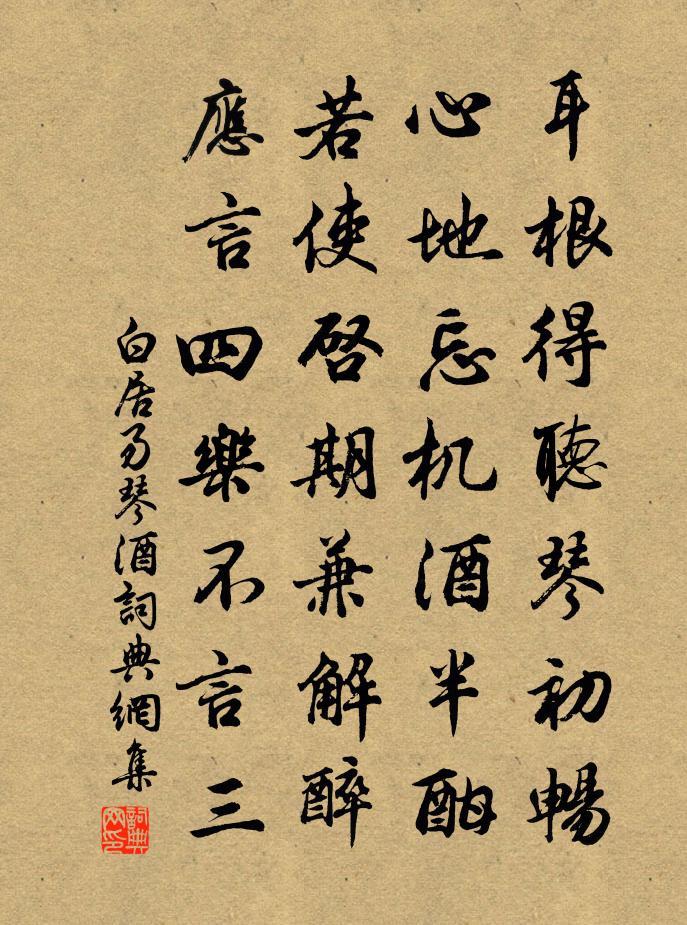 耳根得聽琴初暢
心地忘机酒半酣
若使啓期兼解醉
應言四樂不言三
白居易琴酒詞典網集
詞典网印